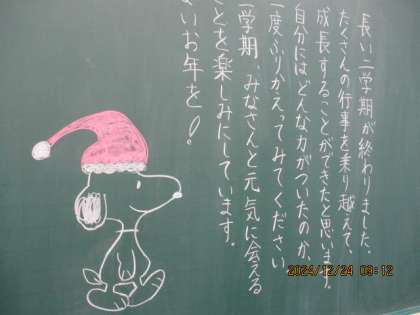 長い二学期が終わりました。
たくさんの行事を乗り越えて、
成長することができたと思います。
自分にはどんな力がついたのか、
一度ふりかえってみてください
学期、みなさんと元気に会える
ことを楽しみにしています。
いお年を！
2024/12/24 09:12